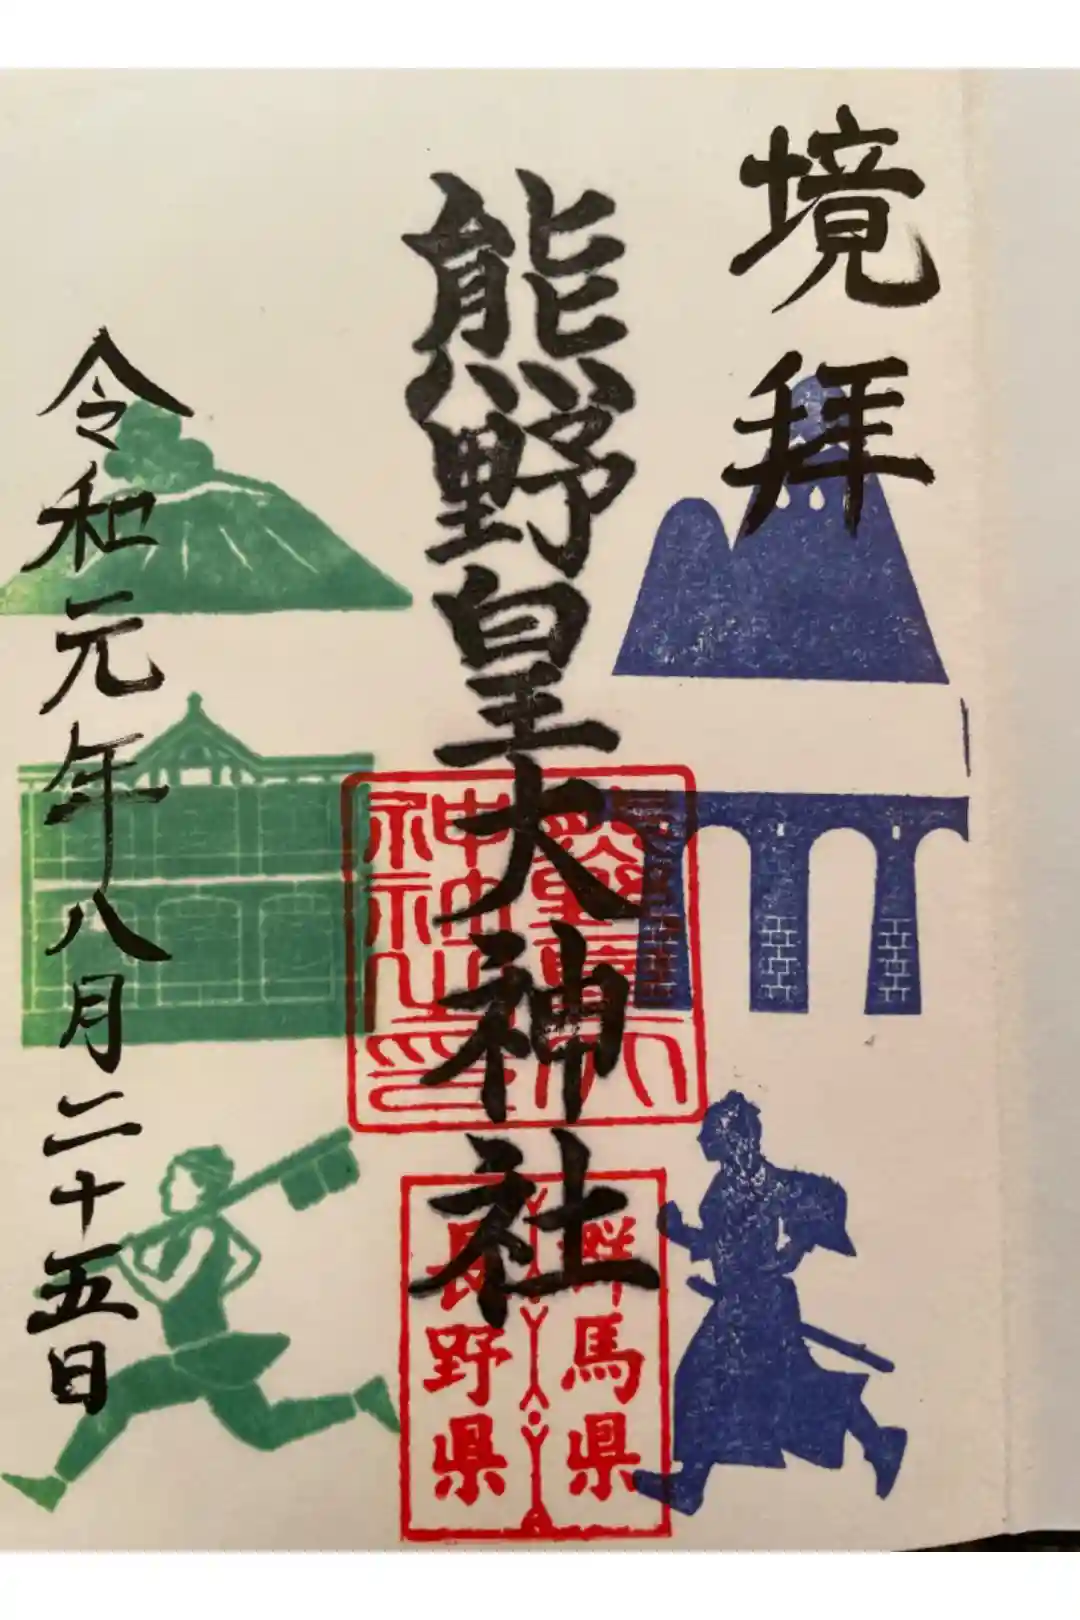 境拝
熊野皇大神社
群馬県
長野県
令和元年八月二十五日